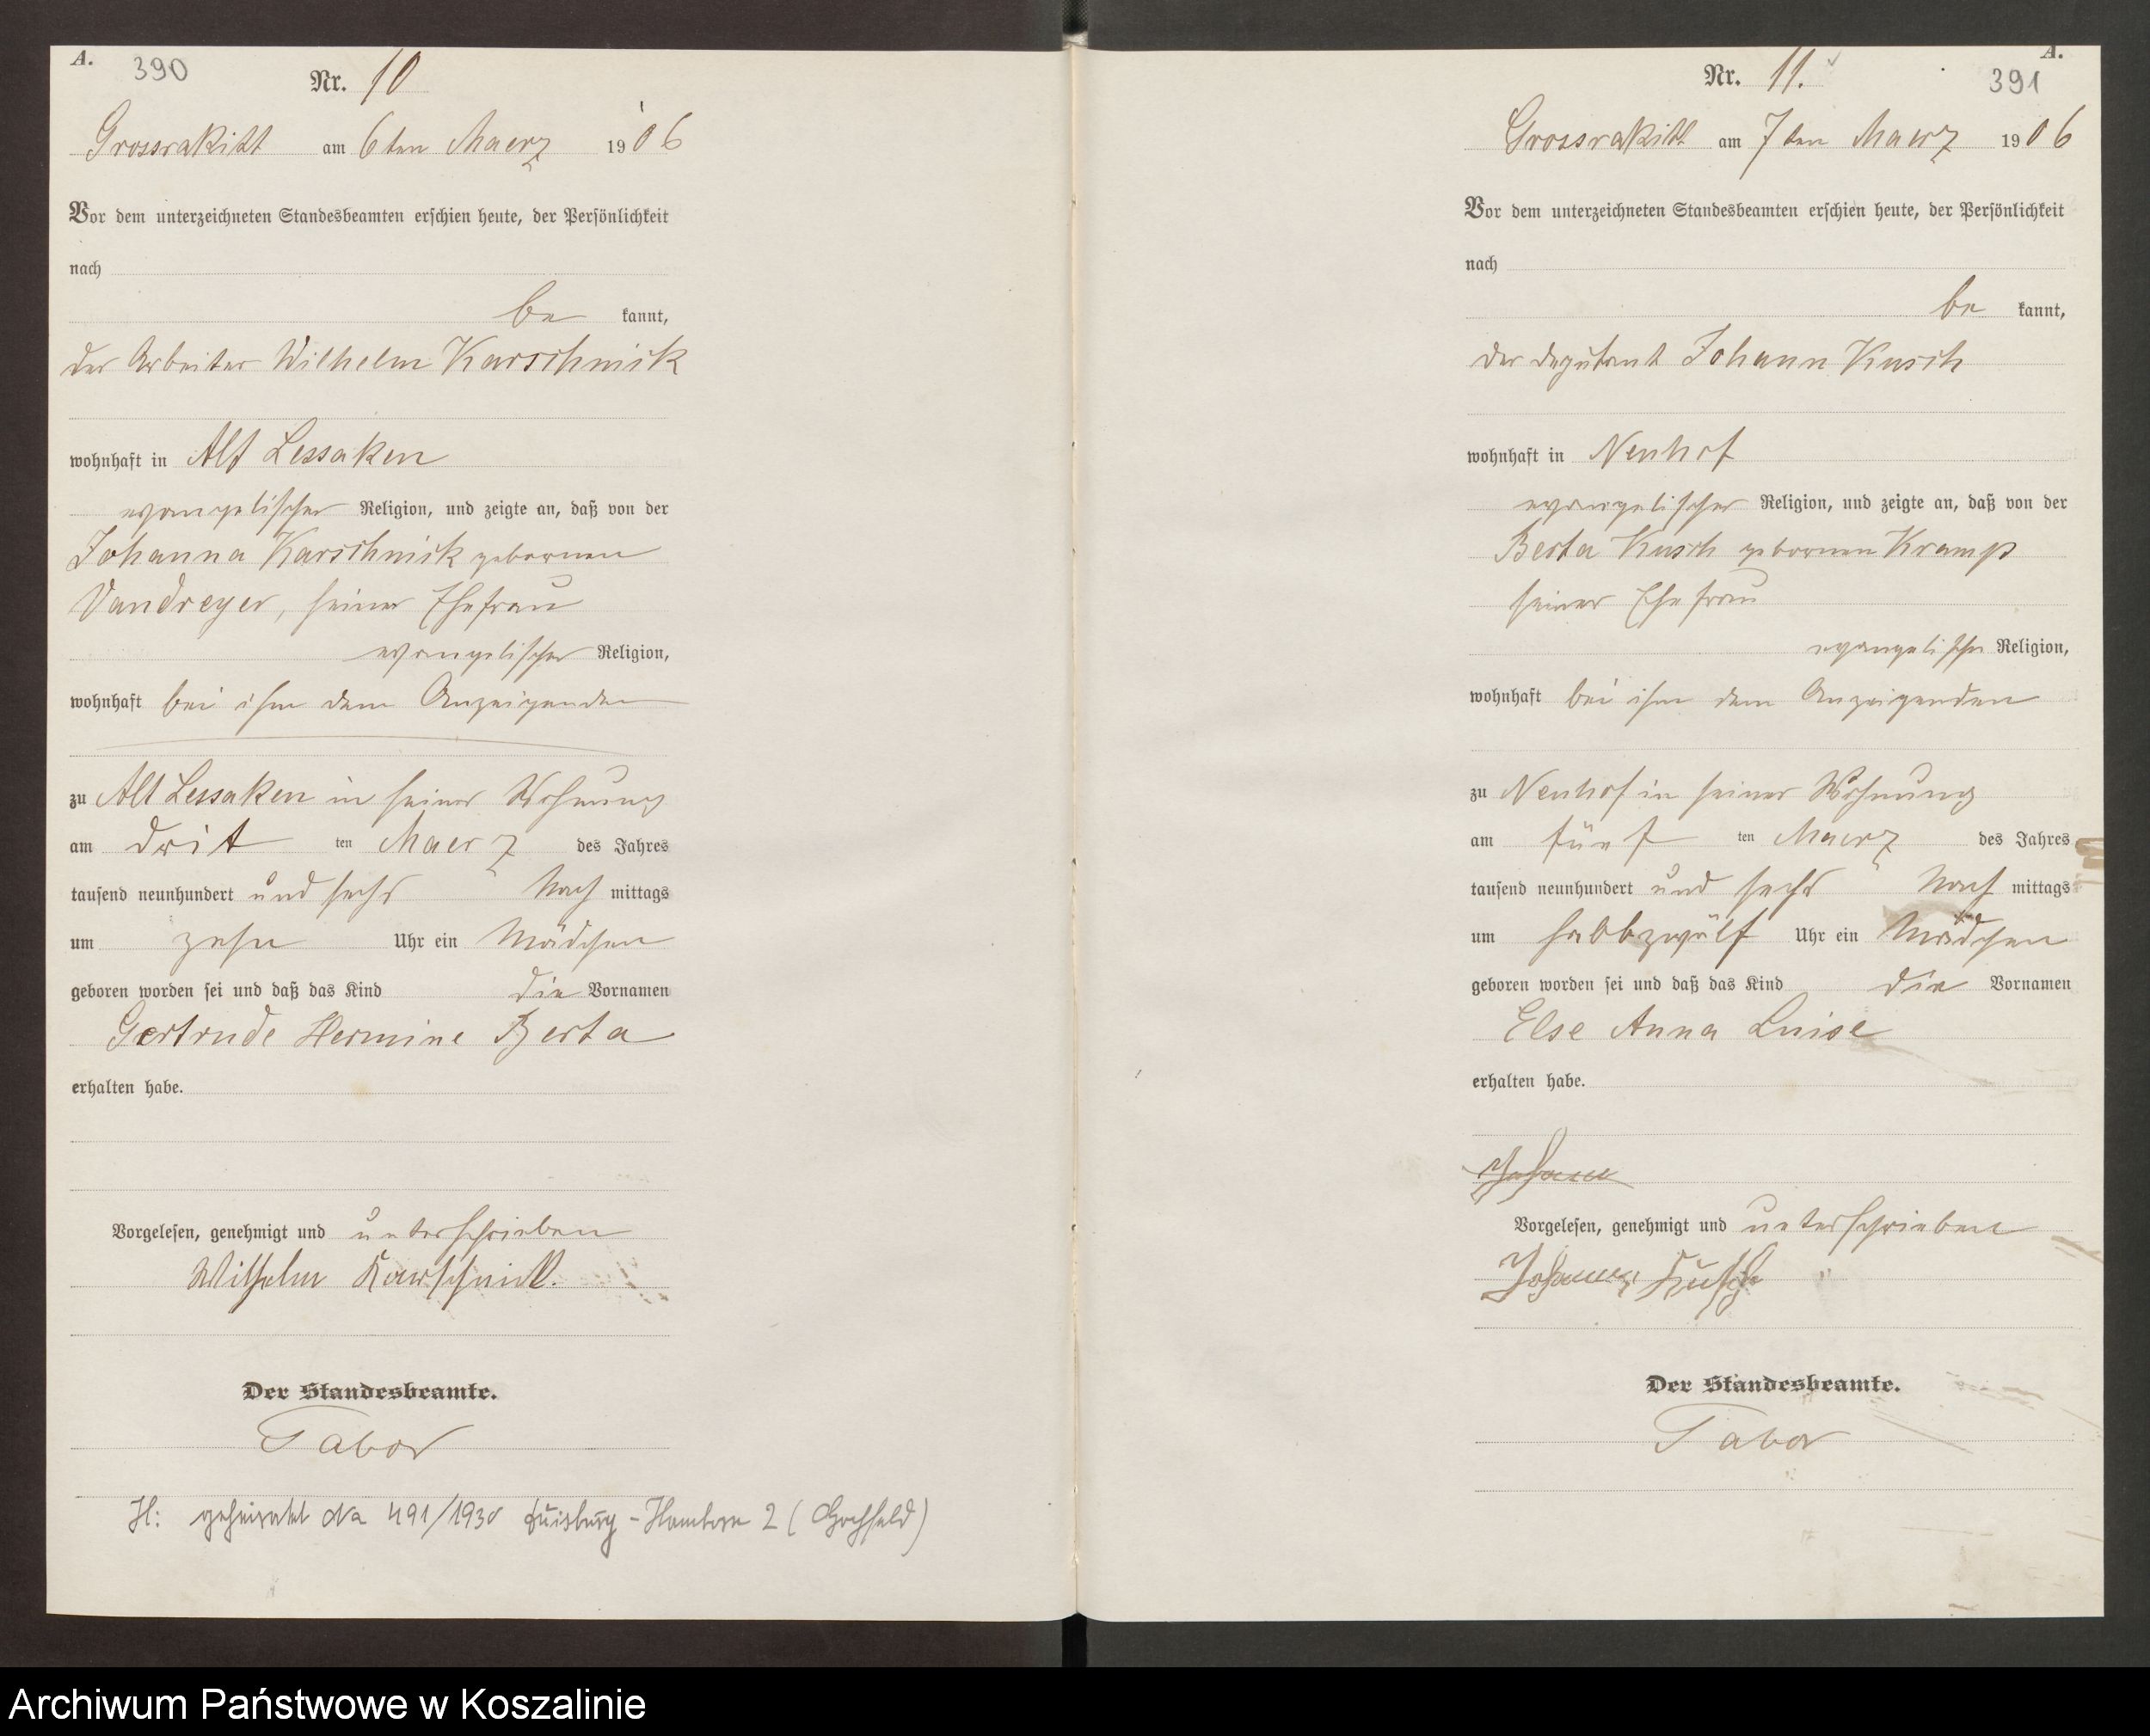 A. 390
Nr. 10
Grossrakitt am 6ten Maerz 1906
Vor dem unterzeichneten Standesbeamten erschien heute, der Persönlichkeit
nach
be kannt,
der Arbeiter Wilhelm Karschnick
wohnhaft in Alt Lessaken
evangelischer Religion, und zeigte an, daß von der
Johanna Karschnick gebornen
Vandreyer, seiner Ehefrau
evangelischer Religion,
wohnhaft bei ihm dem Anzeigenden
zu Alt Lessaken in seiner Wohnung
am drit ten Maerz des Jahres
tausend neunhundert und sechs Nach mittags
um zehn Uhr ein Mädchen
geboren worden sei und daß das Kind die Vornamen
Gertrude Hermine Berta
erhalten habe.
Vorgelesen, genehmigt und unterschrieben
Wilhelm Karschnick.
Der Standesbeamte.
Tabor
H: geheiratet Na 491/1930 Duisburg-Hamborn 2 (Hochfeld)
A.
Nr. 11. 391
Grossrakitt am 7ten Maerz 1906
Vor dem unterzeichneten Standesbeamten erschien heute, der Persönlichkeit
nach
be kannt,
der Deputant Johann Kusch
wohnhaft in Neuhof
evangelischer Religion, und zeigte an, daß von der
Berta Kusch gebornen Kramp
seiner Ehefrau
evangelischer Religion,
wohnhaft bei ihm dem Anzeigenden
zu Neuhof in seiner Wohnung
am fünf ten Maerz des Jahres
tausend neunhundert und sechs Nach mittags
um halbzwölf Uhr ein Mädchen
geboren worden sei und daß das Kind die Vornamen
Else Anna Luise
erhalten habe.
Johann
Vorgelesen, genehmigt und unterschrieben
Johann Kusch
Der Standesbeamte.
Tabor
Archiwum Państwowe w Koszalinie